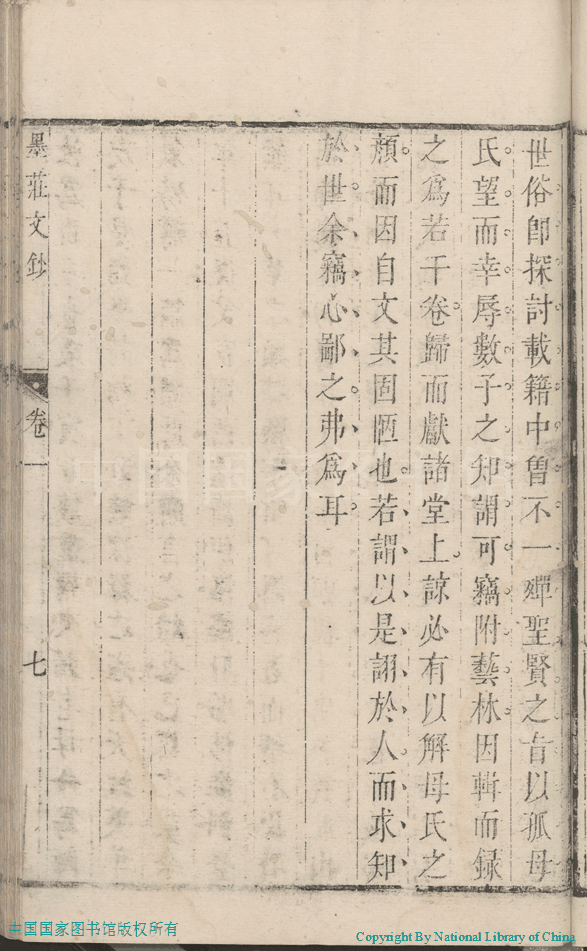 世俗卽探討載籍中曾不一殫聖賢之旨以孤母
氏望而幸辱數子之知謂可竊附藝林因輯而録
之爲若干卷歸而獻諸堂上諒必有以解母氏之
顏而因自文其固陋也若謂以是詡於人而求知
於世余竊心鄙之弗爲耳
墨莊文鈔
卷一
七
中国国家图书馆版权所有
Copyright By National Library of China